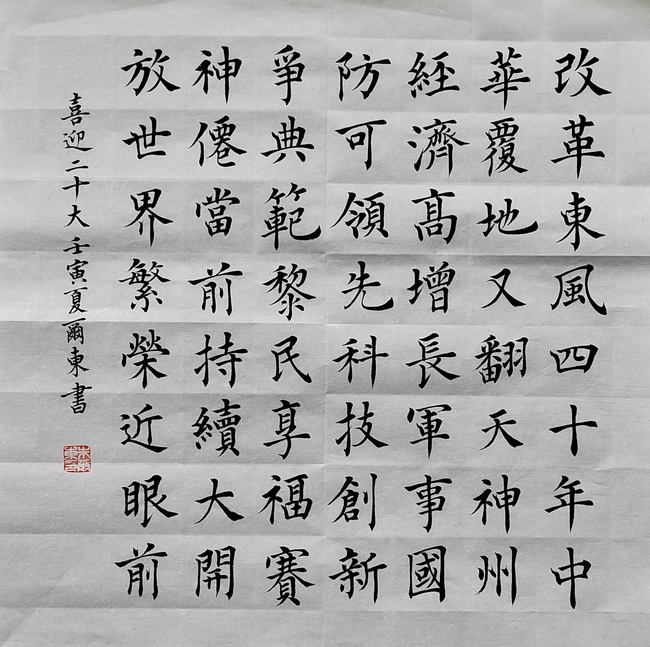 改革東風四十年中
華覆地又翻天神州
經濟髙增長軍事國
防可領先科技創新
爭典範黎民享福賽
神僊當前持續大開
放世界繁榮近眼前
喜迎二十大壬寅夏爾東書